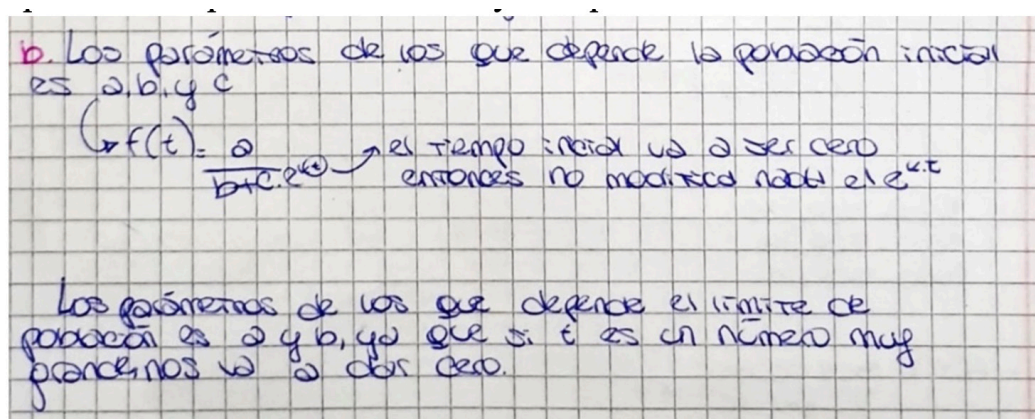 b. Los parámetros de los que depende la población inicial
es a, b, y c
f(t) = a / b+c.e^(k.t) → el tiempo inicial va a ser cero
entonces no modifica nada el e^k.t
Los parámetros de los que depende el limite de
población es a y b, ya que si t es un número muy
grande nos va a dar cero.